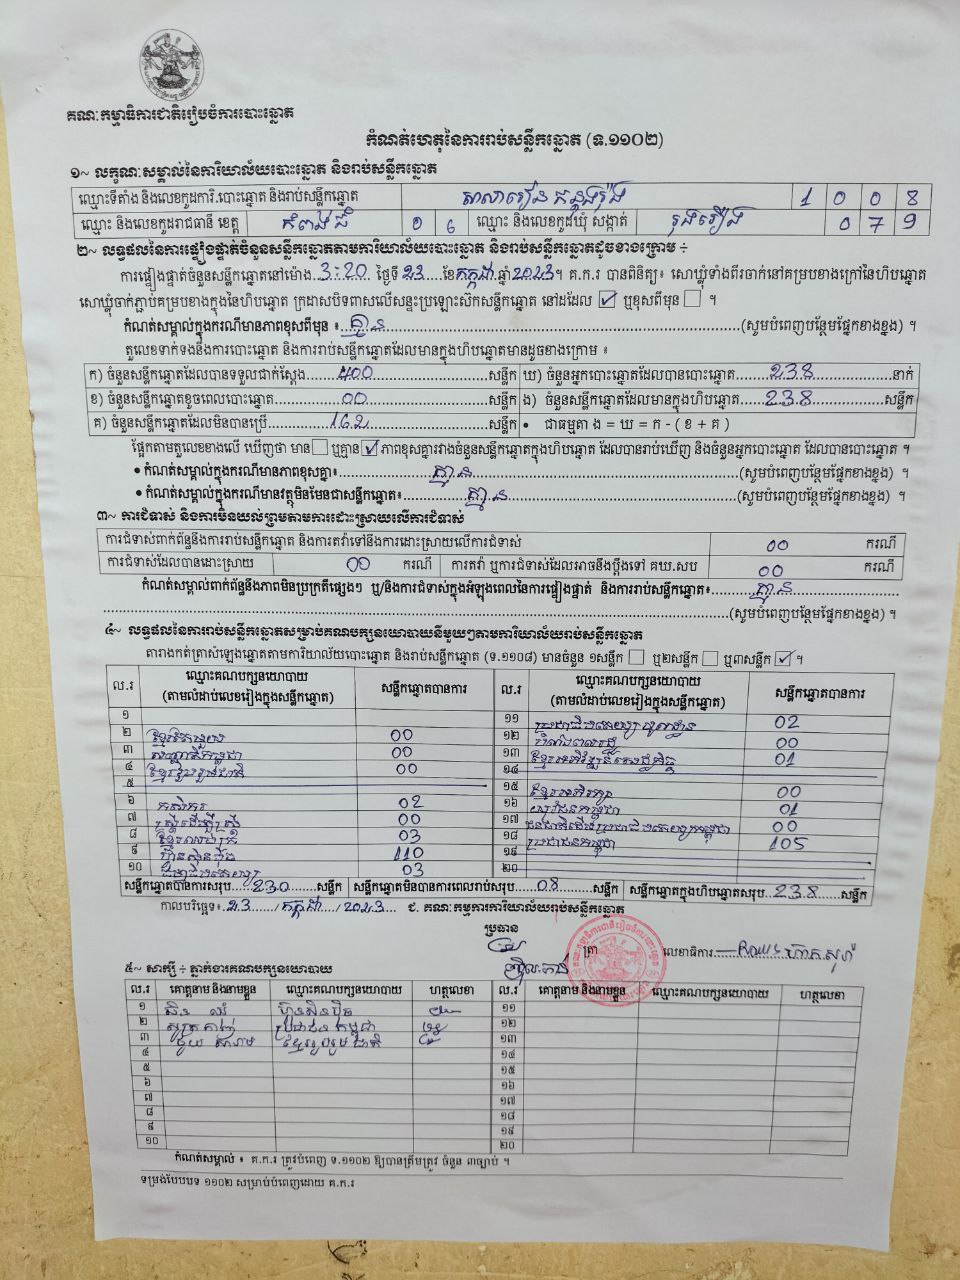 គណៈកម្មាធិការជាតិរៀបចំការបោះឆ្នោត
កំណត់ហេតុនៃការរាប់សន្លឹកឆ្នោត (ទ.១១០២)
១~ លក្ខណៈសម្គាល់នៃការិយាល័យបោះឆ្នោត និងរាប់សន្លឹកឆ្នោត
ឈ្មោះទីតាំង និងលេខកូដការិ.បោះឆ្នោត និងរាប់សន្លឹកឆ្នោត សាលារៀន 1 0 0 8
ឈ្មោះ និងលេខកូដរាជធានី ខេត្ត កំពង់ធំ 0 6 ឈ្មោះ និងលេខកូដឃុំ សង្កាត់ រុងរឿង 0 7 9
២~ លទ្ធផលនៃការផ្ទៀងផ្ទាត់ចំនួនសន្លឹកឆ្នោតតាមការិយាល័យបោះឆ្នោត និងរាប់សន្លឹកឆ្នោតដូចខាងក្រោម ÷
ការផ្ទៀងផ្ទាត់ចំនួនសន្លឹកឆ្នោតនៅម៉ោង 3:20 ថ្ងៃទី 23 ខែ កក្កដា ឆ្នាំ 2023 ។ គ.ក.រ បានពិនិត្យ៖ សោឃ្លុំទាំងពីរចាក់នៅគម្របខាងក្រៅនៃហិបឆ្នោត
សោឃ្លុំចាក់ភ្ជាប់គម្របខាងក្នុងនៃហិបឆ្នោត ក្រដាសបិទពាសលើសន្ទះប្រឡោះស៊កសន្លឹកឆ្នោត នៅដដែល ☑ ឬខុសពីមុន ☐ ។
កំណត់សម្គាល់ក្នុងករណីមានភាពខុសពីមុន ៖ គ្មាន (សូមបំពេញបន្ថែមផ្នែកខាងខ្នង) ។
តួលេខទាក់ទងនឹងការបោះឆ្នោត និងការរាប់សន្លឹកឆ្នោតដែលមានក្នុងហិបឆ្នោតមានដូចខាងក្រោម ៖
ក) ចំនួនសន្លឹកឆ្នោតដែលបានទទួលជាក់ស្តែង 400 សន្លឹក ឃ) ចំនួនអ្នកបោះឆ្នោតដែលបានបោះឆ្នោត 238 នាក់
ខ) ចំនួនសន្លឹកឆ្នោតខូចពេលបោះឆ្នោត 00 សន្លឹក ង) ចំនួនសន្លឹកឆ្នោតដែលមានក្នុងហិបឆ្នោត 238 សន្លឹក
គ) ចំនួនសន្លឹកឆ្នោតដែលមិនបានប្រើ 162 សន្លឹក • ជាធម្មតា ង = ឃ = ក - ( ខ + គ )
ផ្អែកតាមតួលេខខាងលើ ឃើញថា មាន ☐ ឬគ្មាន ☑ ភាពខុសគ្នារវាងចំនួនសន្លឹកឆ្នោតក្នុងហិបឆ្នោត ដែលបានរាប់ឃើញ និងចំនួនអ្នកបោះឆ្នោត ដែលបានបោះឆ្នោត ។
• កំណត់សម្គាល់ក្នុងករណីមានភាពខុសគ្នា៖ គ្មាន (សូមបំពេញបន្ថែមផ្នែកខាងខ្នង) ។
• កំណត់សម្គាល់ក្នុងករណីមានវត្ថុមិនមែនជាសន្លឹកឆ្នោត៖ គ្មាន (សូមបំពេញបន្ថែមផ្នែកខាងខ្នង) ។
៣~ ការជំទាស់ និងការមិនយល់ព្រមតាមការដោះស្រាយលើការជំទាស់
ការជំទាស់ពាក់ព័ន្ធនឹងការរាប់សន្លឹកឆ្នោត និងការតវ៉ាទៅនឹងការដោះស្រាយលើការជំទាស់ 00 ករណី
ការជំទាស់ដែលបានដោះស្រាយ 00 ករណី ការតវ៉ា ឬការជំទាស់ដែលអាចនឹងប្តឹងទៅ គឃ.សប 00 ករណី
កំណត់សម្គាល់ពាក់ព័ន្ធនឹងភាពមិនប្រក្រតីផ្សេងៗ ឬ/និងការជំទាស់ក្នុងអំឡុងពេលនៃការផ្ទៀងផ្ទាត់ និងការរាប់សន្លឹកឆ្នោត៖ គ្មាន
(សូមបំពេញបន្ថែមផ្នែកខាងខ្នង) ។
៤~ លទ្ធផលនៃការរាប់សន្លឹកឆ្នោតសម្រាប់គណបក្សនយោបាយនីមួយៗតាមការិយាល័យរាប់សន្លឹកឆ្នោត
តារាងកត់ត្រាសំឡេងឆ្នោតតាមការិយាល័យបោះឆ្នោត និងរាប់សន្លឹកឆ្នោត (ទ.១១០៨) មានចំនួន ១សន្លឹក ☐ ឬ២សន្លឹក ☐ ឬ៣សន្លឹក ☑ ។
ល.រ ឈ្មោះគណបក្សនយោបាយ (តាមលំដាប់លេខរៀងក្នុងសន្លឹកឆ្នោត) សន្លឹកឆ្នោតបានការ ល.រ ឈ្មោះគណបក្សនយោបាយ (តាមលំដាប់លេខរៀងក្នុងសន្លឹកឆ្នោត) សន្លឹកឆ្នោតបានការ
១ ១១ 02
២ ខ្មែរតែមួយ 00 ១២ 00
៣ សញ្ជាតិកម្ពុជា 00 ១៣ ខ្មែរអភិវឌ្ឍន៍សេដ្ឋកិច្ច 01
៤ ខ្មែររួបរួមជាតិ 00 ១៤
៥ ១៥ ខ្មែរអភិរក្ស 00
៦ កសិករ 02 ១៦ យុវជនកម្ពុជា 01
៧ ស្ត្រីដើម្បីស្ត្រី 00 ១៧ ជនជាតិដើមប្រជាធិបតេយ្យកម្ពុជា 00
៨ ខ្មែរឈប់ក្រ 03 ១៨ ប្រជាជនកម្ពុជា 105
៩ ហ៊្វុនស៊ិនប៉ិច 110 ១៩
១០ 03 ២០
សន្លឹកឆ្នោតបានការសរុប 230 សន្លឹក សន្លឹកឆ្នោតមិនបានការពេលរាប់សរុប 08 សន្លឹក សន្លឹកឆ្នោតក្នុងហិបឆ្នោតសរុប 238 សន្លឹក
កាលបរិច្ឆេទ៖ 23 / កក្កដា / 2023 ជ. គណៈកម្មការការិយាល័យរាប់សន្លឹកឆ្នោត
ប្រធាន
ត្រា លេខាធិការ
៥~ សាក្សី ÷ ភ្នាក់ងារគណបក្សនយោបាយ
ល.រ គោត្តនាម និងនាមខ្លួន ឈ្មោះគណបក្សនយោបាយ ហត្ថលេខា ល.រ គោត្តនាម និងនាមខ្លួន ឈ្មោះគណបក្សនយោបាយ ហត្ថលេខា
១ ហ៊្វុនស៊ិនប៉ិច ១១
២ ប្រជាជនកម្ពុជា ១២
៣ ខ្មែររួបរួមជាតិ ១៣
៤ ១៤
៥ ១៥
៦ ១៦
៧ ១៧
៨ ១៨
៩ ១៩
១០ ២០
កំណត់សម្គាល់ ៖ គ.ក.រ ត្រូវបំពេញ ទ.១១០២ ឱ្យបានត្រឹមត្រូវ ចំនួន ៣ច្បាប់ ។
ទម្រង់បែបបទ ១១០២ សម្រាប់បំពេញដោយ គ.ក.រ